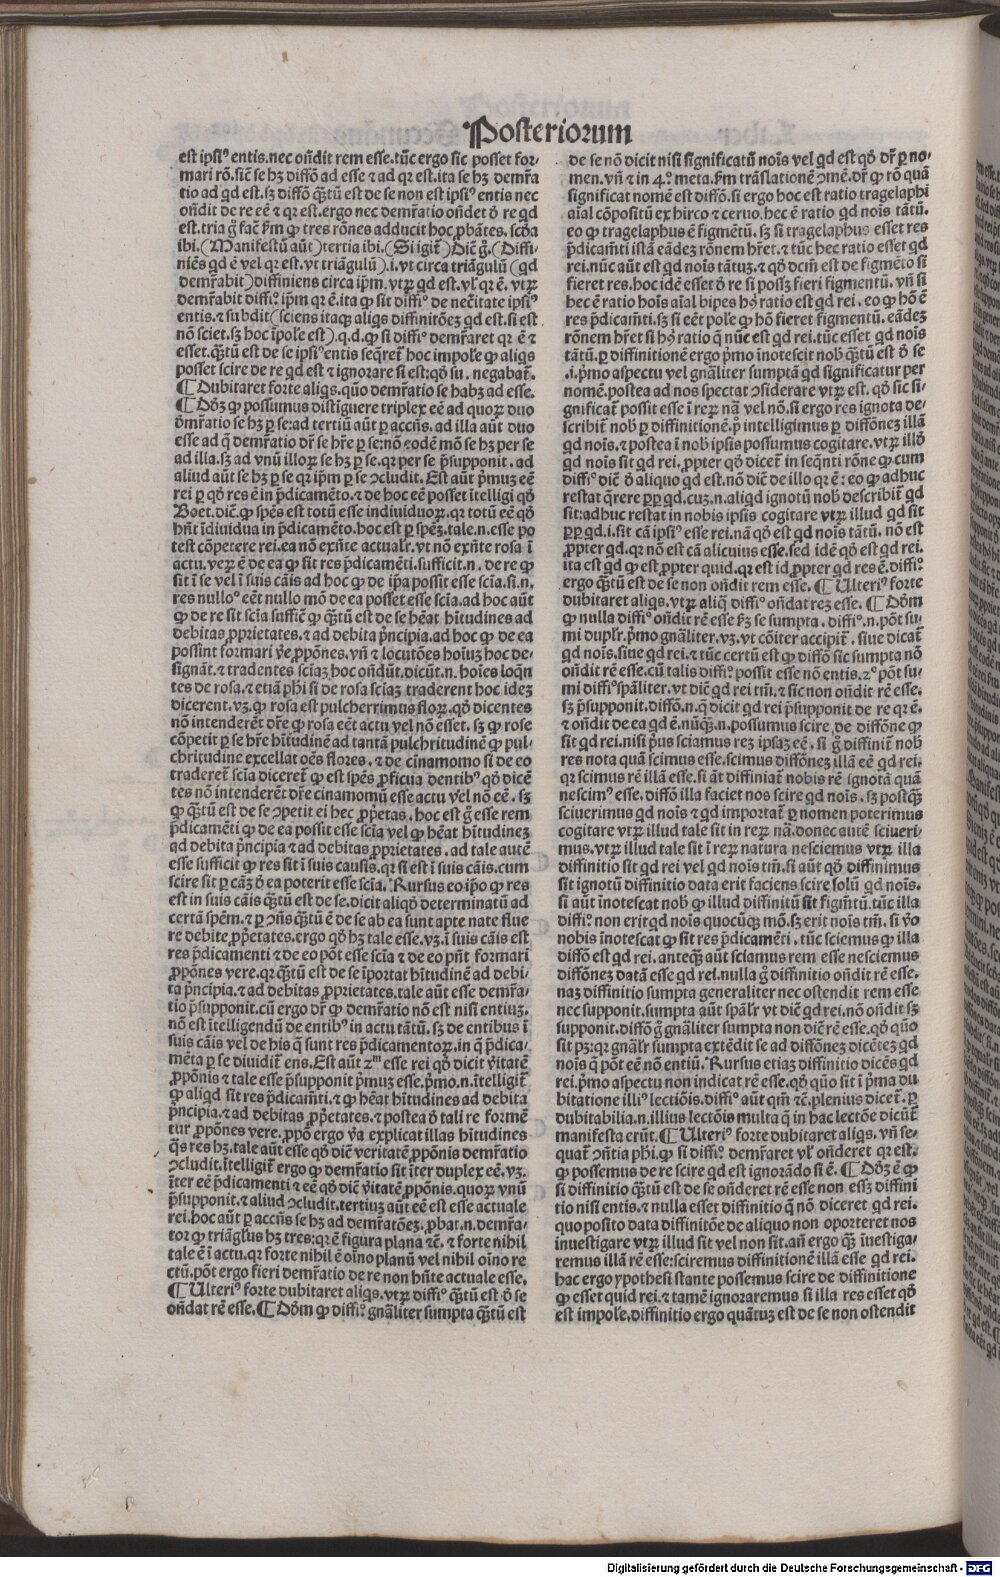 Posteriorum
est ipsiꝰ entis. nec oñdit rem esse. tũc ergo sic posset for-
mari rõ. sic̃ se hꝫ diffõ ad esse ⁊ ad qꝛ est. ita se hꝫ demr̃a
tio ad qd est. sꝫ diffõ q̃ꝫtũ est de se non est ipsiꝰ entis nec
oñdit de re eẽ ⁊ qꝛ est. ergo nec demr̃atio oñdet ð re qd
est. tria g̊ fac̃ ẜm ꝙ tres rõnes adducit hoc ꝓbãtes. scðʒa
ibi. (Manifestũ aũt) tertia ibi. (Si igit̃) Dic̃ g̊. (Diffi-
niẽs qd ẽ vel qꝛ est. vt triãgulũ) .i. vt circa triãgulũ (qd
demr̃abit) diffiniens circa ip̃m. vtꝝ qd est. vl̃ qꝛ ẽ. vtꝝ
demr̃abit diffi.º ip̃m qꝛ ẽ. ita ꝙ sit diffiº de nec̃itate ipsiꝰ
entis. ⁊ subdit (sciens itaqꝫ aliqs diffinitõeʒ qd est. si est
nõ sciet. sꝫ hoc ĩpole est) .q.d. ꝙ si diffiº demr̃aret qꝛ ẽ ⁊
esset. q̃ꝫtũ est de se ipsiꝰ entis seqret̃ hoc impole ꝙ aliqs
posset scire de re qd est ⁊ ignorare si est: qð su. negabat̃.
¶ Dubitaret forte aliqs. quõ demr̃atio se habꝫ ad esse.
¶ Dõʒ ꝙ possumus distĩguere triplex eẽ ad quoꝝ duo
ðmr̃atio se hꝫ ꝑ se: ad tertiũ aũt ꝑ accñs. ad illa aũt duo
esse ad q̃ demr̃atio dr̃ se hr̃e ꝑ se: nõ eodẽ mõ se hꝫ per se
ad illa. sꝫ ad vnũ illoꝝ se hꝫ ꝑ se. qꝛ per se p̃supponit. ad
aliud aũt se hꝫ ꝑ se qꝛ ip̃m ꝑ se ↄcludit. Est aũt p̃muʒ eẽ
rei ꝑ qð res ẽ in p̃dicamẽto. ⁊ de hoc eẽ posset ĩtelligi qð
Boet. dic̃. ꝙ spẽs est totũ esse indiuiduoꝝ. qꝛ totũ eẽ qð
hñt ĩdiuidua in p̃dicamẽto. hoc est ꝑ spẽʒ. tale .n. esse po
test cõpetere rei. ea nõ exñte actualr̃. vt nõ exñte rosa ĩ
actu. veꝝ ẽ de ea ꝙ sit res p̃dicamẽti. sufficit .n. de re ꝙ
sit ĩ se vel ĩ suis cãis ad hoc ꝙ de ip̃a possit esse scĩa. si .n.
res nulloº eẽt nullo mõ de ea posset esse scĩa. ad hoc aũt
ꝙ de re sit scĩa suffic̃ ꝙ q̃ꝫtũ est de se hẽat hĩtudines ad
debitas ꝓprietates. ⁊ ad debita p̃ncipia. ad hoc ꝙ de ea
possint formari ṽe ꝓpões. vñ ⁊ locutões hoĩuʒ hoc de-
signãt. ⁊ tradentes scĩaʒ hoc oñdũt. dicũt .n. hoĩes loqñ
tes de rosa. ⁊ etiã phĩ si de rosa scĩaʒ traderent hoc ideʒ
dicerent. vʒ. ꝙ rosa est pulcherrimus floꝝ. qð dicentes
nõ intenderẽt dr̃e ꝙ rosa eẽt actu vel nõ esset. sꝫ ꝙ rose
cõpetit ꝑ se hr̃e hĩtudinẽ ad tantã pulchritudinẽ ꝙ pul-
chritudine excellat oẽs flores. ⁊ de cinamomo si de eo
traderet̃ scĩa diceret̃ ꝙ est spẽs ꝓficua dentibꝰ qð dicẽ
tes nõ intenderẽt dr̃e cinamomũ esse actu vel nõ eẽ. sꝫ
ꝙ q̃ꝫtũ est de se ↄpetit ei hec ꝓp̃etas. hoc est g̊ esse rem
p̃dicamẽti ꝙ de ea possit esse scĩa vel ꝙ hẽat hĩtudineʒ
ad debita p̃ncipia ⁊ ad debitas ꝓprietates. ad tale autẽ
esse sufficit ꝙ res sit ĩ suis causis. qꝛ si est ĩ suis cãis. cum
scire sit ꝑ cãʒ ð ea poterit esse scĩa. Rursus eo ip̃o ꝙ res
est in suis cãis q̃ꝫtũ est de se. dicit aliqð determinatũ ad
certã spẽm. ⁊ ꝑ ↄñs q̃ꝫtũ ẽ de se ab ea sunt apte nate flue
re debite ꝓp̃etates. ergo qð hꝫ tale esse. vʒ. ĩ suis cãis est
res p̃dicamẽti ⁊ de eo põt esse scĩa ⁊ de eo pñt formari
ꝓpõnes vere. qꝛ q̃ꝫtũ est de se ĩportat hĩtudinẽ ad debi-
ta p̃ncipia. ⁊ ad debitas ꝓprietates. tale aũt esse demr̃a-
tio p̃supponit. cũ ergo dr̃ ꝙ demr̃atio nõ est nisi entiuʒ.
nõ est ĩtelligendũ de entibꝰ in actu tãtũ. sꝫ de entibus ĩ
suis cãis vel de his q̃ sunt res p̃dicamentoꝝ. in q̃ p̃dica-
mẽta ꝑ se diuidit̃ ens. Est aũt 2ᵐ esse rei qð dicit ṽitatẽ
ꝓpõnis ⁊ tale esse p̃supponit p̃muʒ esse. p̃mo .n. ĩtelligit̃
ꝙ aliqd sit res p̃dicam̃ti. ⁊ ꝙ hẽat hĩtudines ad debita
p̃ncipia. ⁊ ad debitas ꝓp̃etates. ⁊ postea ð tali re formẽ
tur ꝓpõnes vere. ꝓpõ ergo ṽa explicat illas hĩtudines
q̃s res hꝫ. tale aũt esse qð dic̃ veritatẽ ꝓpõnis demr̃atio
ↄcludit. ĩtelligit̃ ergo ꝙ demr̃atio sit ĩter duplex eẽ. vʒ.
ĩter eẽ p̃dicamenti ⁊ eẽ qð dic̃ ṽitatẽ ꝓpõnis. quoꝝ vnũ
p̃supponit. ⁊ aliud ↄcludit. tertiuʒ aũt eẽ est esse actuale
rei. hoc aũt ꝑ accñs se hꝫ ad demr̃atõeʒ. ꝓbat .n. demr̃a-
tor ꝙ triãgl̃us hꝫ tres: qꝛ ẽ figura plana ⁊c̃. ⁊ forte nihil
tale ẽ ĩ actu. qꝛ forte nihil ẽ oĩno planũ vel nihil oĩno re
ctũ. põt ergo fieri demr̃atio de re non hñte actuale esse.
¶ Ulteriꝰ forte dubitaret aliqs. vtꝝ diffiº q̃ꝫtũ est ð se
oñdat rẽ esse. ¶ Dõm ꝙ diffiº gnãliter sumpta q̃ꝫtũ est
de se nõ dicit nisi significatũ noĩs vel qd est qð dr̃ ꝑ no-
men. vñ ⁊ in 4.º meta. ẜm trãslationẽ ↄmẽ. dr̃ ꝙ rõ quã
significat nomẽ est diffõ. si ergo hoc est ratio tragelaphi
aĩal cõpositũ ex hirco ⁊ ceruo. hec ẽ ratio qd noĩs tãtũ.
eo ꝙ tragelaphus ẽ figmẽtũ. sꝫ si tragelaphus esset res
p̃dicam̃ti istã eãdeʒ rõnem hr̃et. ⁊ tũc hec ratio esset qd
rei. nũc aũt est qd noĩs tãtuʒ. ⁊ qð dcm̃ est de figmẽto si
fieret res. hoc idẽ esset ð re si possʒ fieri figmentũ. vñ si
hec ẽ ratio hoĩs aĩal bipes hꝰ ratio est qd rei. eo ꝙ hõ ẽ
res p̃dicam̃ti. sꝫ si eẽt pole ꝙ hõ fieret figmentũ. eãdeʒ
rõnem hr̃et si hꝰ ratio q̃ nũc est qd rei. tũc esset qd noĩs
tãtũ. ꝑ diffinitionẽ ergo p̃mo ĩnotescit nob̃ q̃ꝫtũ est ð se
.i. p̃mo aspectu vel gnãliter sumptã qd significatur per
nomẽ. postea ad nos spectat ↄsiderare vtꝝ est. qð sic si-
gnificat̃ possit esse ĩ reꝝ nã vel nõ. si ergo res ignota de-
scribit̃ nob̃ ꝑ diffinitionẽ. p̊ intelligimus ꝑ diffõneʒ illã
qd noĩs. ⁊ postea ĩ nob̃ ipsis possumus cogitare. vtꝝ illð
qd noĩs sit qd rei. ꝓpter qð dicet̃ in seqñti rõne ꝙ cum
diffiº dic̃ ð aliquo qd est. nõ dic̃ de illo qꝛ ẽ: eo ꝙ adhuc
restat q̃rere ꝓꝑ qd. cuʒ .n. aliqd ignotũ nob̃ describit̃ qd
sit: adhuc restat in nobis ipsis cogitare vtꝝ illud qd sit
ꝓꝑ qd .i. sit cã ipsiꝰ esse rei. nã qð est qd noĩs tãtũ. nõ est
ꝓpter qd. qꝛ nõ est cã alicuius esse. sed idẽ qð est qd rei.
ita est qd ꝙ est ꝓpter quid. qꝛ est id ꝓpter qd res ẽ. diffiº
ergo q̃ꝫtũ est de se non oñdit rem esse. ¶ Ulteriꝰ forte
dubitaret aliqs. vtꝝ aliq̃ diffiº oñdat reʒ esse. ¶ Dõm
ꝙ nulla diffiº oñdit rẽ esse ẜʒ se sumpta. diffiº .n. põt su-
mi duplr̃. p̃mo gnãliter. vʒ. vt cõiter accipit̃. siue dicat̃
qd noĩs. siue qd rei. ⁊ tũc certũ est ꝙ diffõ sic sumpta nõ
oñdit rẽ esse. cũ talis diffiº possit esse nõ entis. 2º põt su-
mi diffiº spãliter. vt dic̃ qd rei tm̃. ⁊ sic non oñdit rẽ esse.
sꝫ p̃supponit. diffõ .n. q̃ dicit qd rei p̃supponit de re qꝛ ẽ.
⁊ oñdit de ea qd ẽ. nũq̃. n. possumus scire de diffõne ꝙ
sit qd rei. nisi p̃us sciamus reʒ ipsaʒ eẽ. si g̊ diffinit̃ nob̃
res nota quã scimus esse. scimus diffõneʒ illã eẽ qd rei.
qꝛ scimus rẽ illã esse. si aũt diffiniat̃ nobis rẽ ignotã quã
nescimꝰ esse. diffõ illa faciet nos scire qd noĩs. sꝫ postq̃ꝫ
sciuerimus qd noĩs ⁊ qd importat̃ ꝑ nomen poterimus
cogitare vtꝝ illud tale sit in reꝝ nã. donec autẽ sciueri-
mus. vtꝝ illud tale sit ĩ reꝝ natura nesciemus vtꝝ illa
diffinitio sit qd rei vel qd noĩs tm̃. si aũt qð diffinimus
sit ignotũ diffinitio data erit faciens scire solũ qd noĩs.
si aũt ĩnotescat nob̃ ꝙ illud diffinitũ sit figm̃tũ. tũc illa
diffiº non erit qd noĩs quocũqꝫ mõ. sꝫ erit noĩs tm̃. si ṽo
nobis ĩnotescat ꝙ sit res p̃dicamẽti. tũc sciemus ꝙ illa
diffõ est qd rei. anteq̃ʒ aũt sciamus rem esse nesciemus
diffõneʒ datã esse qd rei. nulla g̊ diffinitio oñdit rẽ esse.
naʒ diffinitio sumpta generaliter nec ostendit rem esse
nec supponit. sumpta aũt spãlr̃ vt dic̃ qd rei. nõ oñdit sꝫ
supponit. diffõ g̊ gnãliter sumpta non dic̃ rẽ esse. qð quõ
sit pʒ: qꝛ gnãlr̃ sumpta extẽdit se ad diffõneʒ dicẽteʒ qd
noĩs q̃ põt eẽ nõ entiũ. Rursus etiaʒ diffinitio dicẽs qd
rei. p̃mo aspectu non indicat rẽ esse. qð quõ sit ĩ p̃ma du
bitatione illiꝰ lectiõis. diffiº aũt qm̃ ⁊c̃. plenius dicet̃. ꝑ
dubitabilia .n. illius lectõis multa q̃ in hac lectõe dicũt̃
manifesta erũt. ¶ Ulteriꝰ forte dubitaret aliqs. vñ se-
quat̃ ↄñtia phi. ꝙ si diffiº demr̃aret vl̃ oñderet qꝛ est.
ꝙ possemus de re scire qd est ignorãdo si ẽ. ¶ Dõʒ ẽ ꝙ
si diffinitio q̃ꝫtũ est de se oñderet rẽ esse non essʒ diffini
tio nisi entis. ⁊ nulla esset diffinitio q̃ nõ diceret qd rei.
quo posito data diffinitõe de aliquo non oporteret nos
inuestigare vtꝝ illud sit vel non sit. añ ergo q̃ʒ ĩuestiga-
remus illã rẽ esse: sciremus diffinitionẽ illã esse qd rei.
hac ergo ypothesi stante possemus scire de diffinitione
ꝙ esset quid rei. ⁊ tamẽ ignoraremus si illa res esset qð
est impole. diffinitio ergo quãtuʒ est de se non ostendit
Digitalisierung gefördert durch die Deutsche Forschungsgemeinschaft - DFG